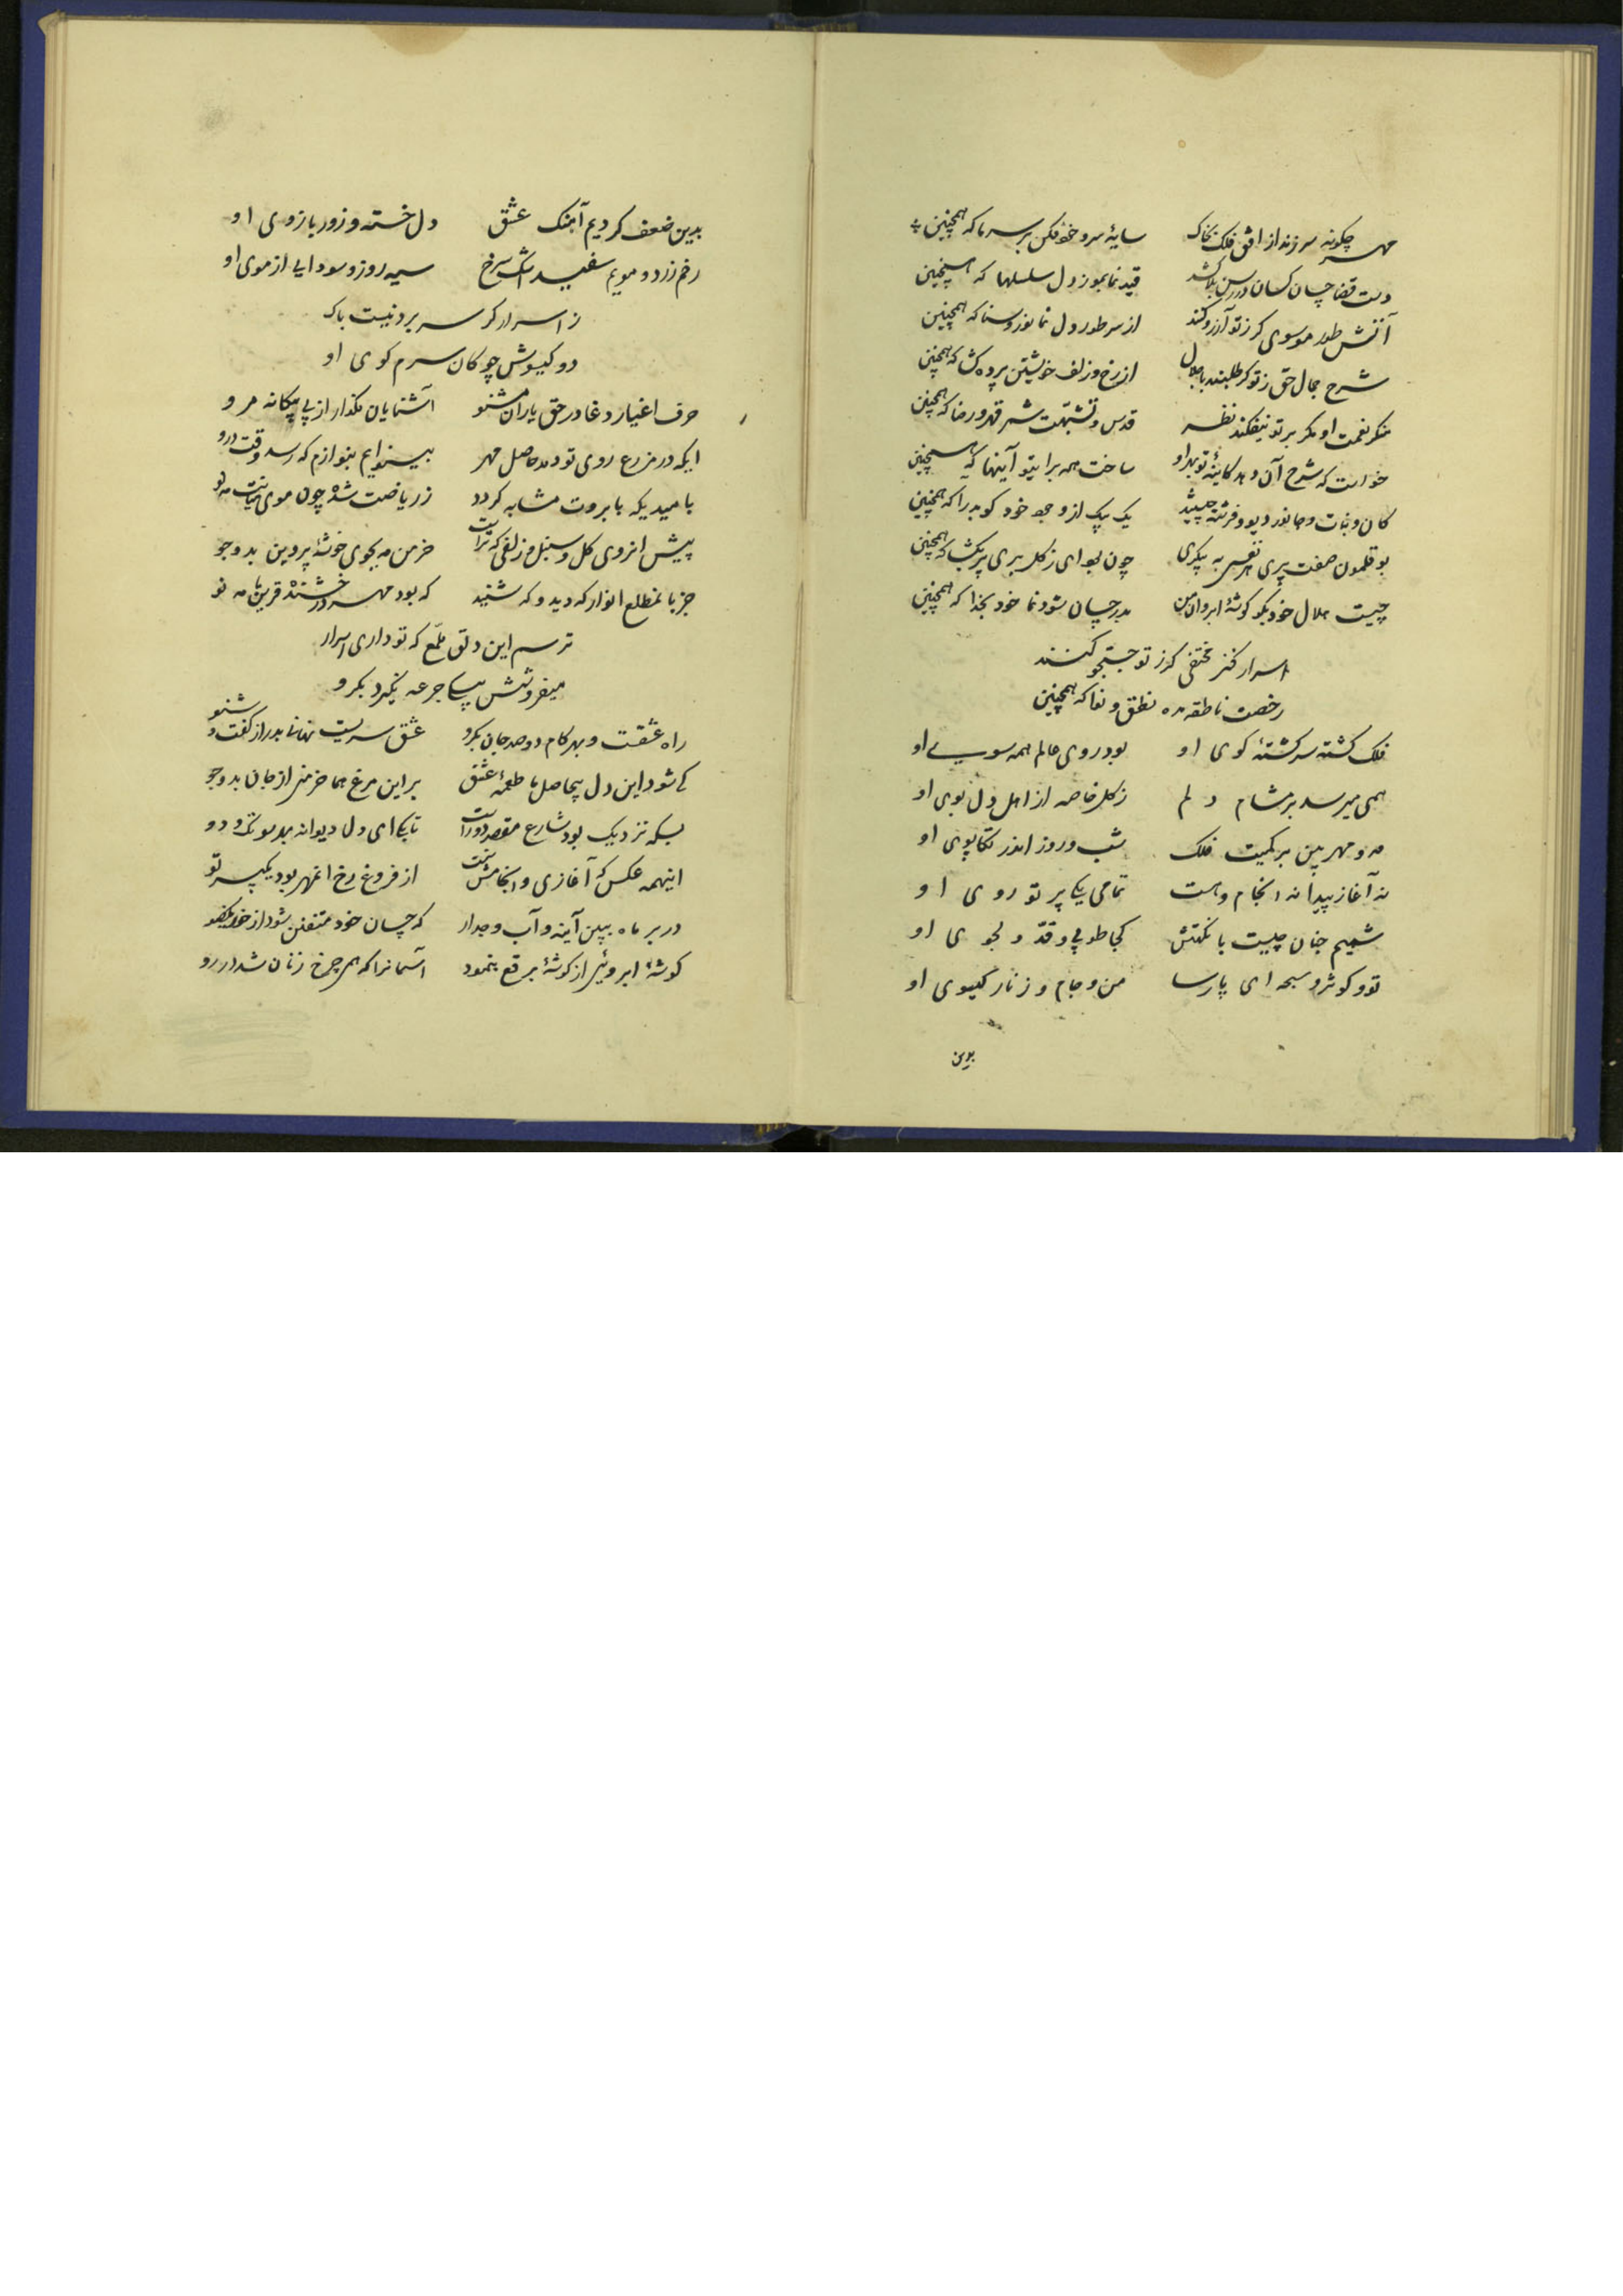 مهر چگونه سر زند از افق فلک بخاک سایهٔ سرو خود فکن بر سر ما که همچنین
دست قضا چسان کسان در رسن بلا کشد قید نما بموز دل سلسلها که همچنین
آتش طور موسوی کر ز تو آرزو کنند از سر طور دل نما نور و سنا که همچنین
شرح جمال حق ز تو کر طلبند با جلال از رخ و زلف خویشتن پرده کشا که همچنین
منکر نعمت او مکر بر تو نیفکند نظر قدس و تشبهت شمر قهر و رضا که همچنین
خواست که شرح آن دهد کاینهٔ تو بهر او ساخت همه برایتو آینها که همچنین
کان و نبات و جانور دیو و فرشته چیستند یک بیک از وجود خود کو بدرا که همچنین
بوقلمون صفت پری هر نفسی به پیکری چون بود ای ز کل بری پر بکشا که همچنین
چیست هلال خود بکو کوشهٔ ابروان من بدر چسان شود نما خود بخدا که همچنین
اسرار کنز مختفی کر ز تو جستجو کنند
رخصت ناطقه بده نطق و نوا که همچنین
فلک کشته سرکشتهٔ کوی او بود روی عالم همه سوی او
همی میرسد بر مشام دلم ز کل خاصه از اهل دل بوی او
مه و مهر بین بر کمیت فلک شب و روز اندر تکاپوی او
نه آغاز پیدا نه انجام و هست تمامی یکی پرتو روی او
شمیم جنان چیست با نکهتش کجا طوبی و قد دلجوی او
تو و کوثر و سبحه ای پارسا من و جام و زنار کیسوی او
بدین
بدین ضعف کردیم آهنک عشق دل خسته و زور بازوی او
رخم زرد و مویم سفید اشک سرخ سیه روز و سودایی از موی او
ز اسرار کر سر برد نیست باک
دو کیسوش چوکان سرم کوی او
حرف اغیار دغا در حق یاران مشنو آشنایان مکذار از پی بیکانه مرو
ایکه در مزرع روی تو دمد حاصل مهر بینوایم بنوازم که رسد وقت درو
با میدیکه بابروت مشابه کردد ز ریاضت شده چون موی میانت مه نو
پیش انروی کل و سنبل و زلفی که تراست خرمن مه بجوی خوشهٔ پروین بدو جو
جز بما مطلع انوار که دید و که شنید که بود مهر درخشنده قرین با مه نو
ترسم این دلق ملمع که تو داری اسرار
میفروشش بیکی جرعه نکیرد بکرو
راه عشقت و بهر کام دو صد جان بکرو عشق سریست نهانی بدر از کفت و شنو
کی شود این دل بیحاصل ما طعمهٔ عشق بر این مرغ هما خرمنی از جان بدو جو
بسکه نزدیک بود شارع مقصد دور است تا بکی ای دل دیوانه بهر سو تک و دو
اینهمه عکس که آغازی و انجامش نیست از فروغ رخ انمهر بود یک پرتو
در بر ماه ببین آینه و آب و جدار که چسان خود متفنن شود از خود یکضو
کوشهٔ ابروئی از کوشهٔ برقع بنمود آسمانرا که همی چرخ زنان شد در رو